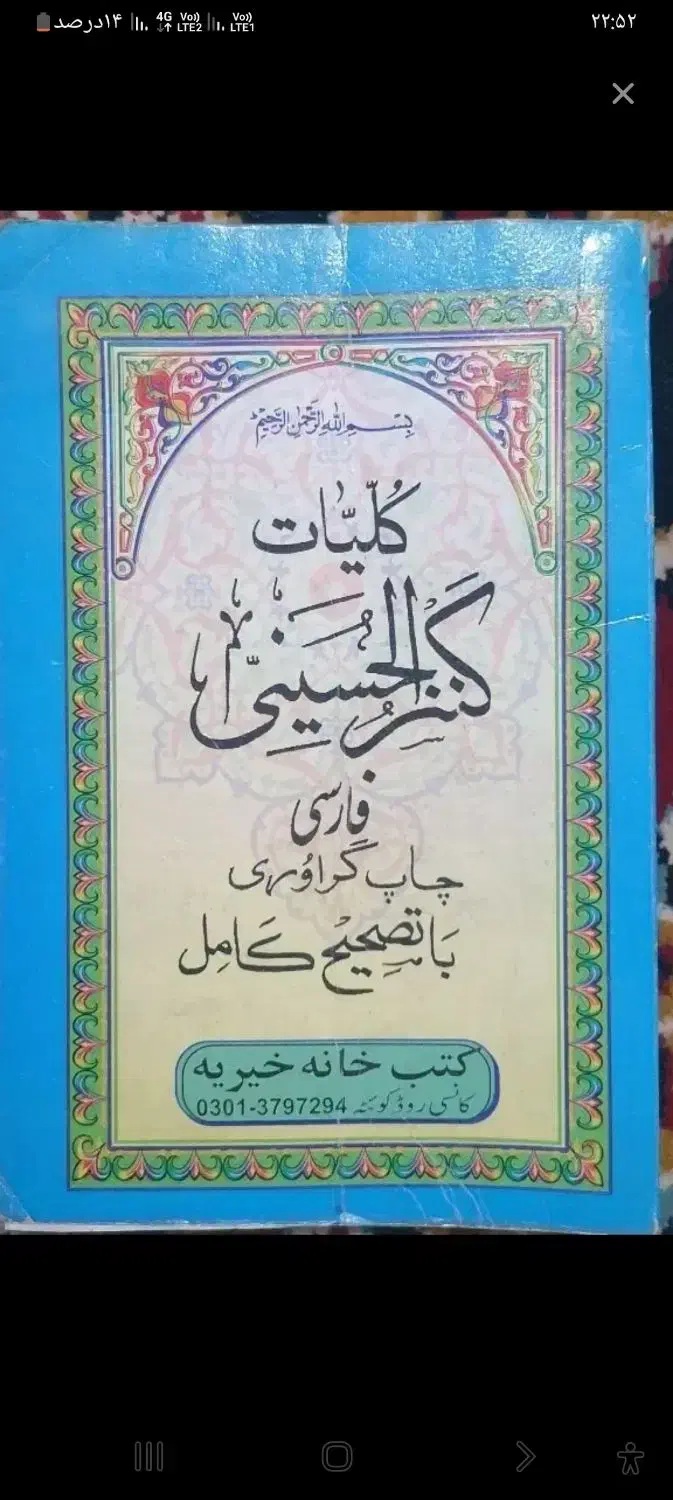 ۲۲:۵۲
۱۴درصد 4G Vo)) LTE2 Vo)) LTE1
بِسْمِ اللهِ الرَّحْمٰنِ الرَّحِيْمِ
کُلّیّات
کَنزُالحُسَینِی
فارسی
چاپ گراوُری
بَا تصحیْح کَامِل
کتب خانه خیریه
کانسی روڈ کوئٹہ 0301-3797294